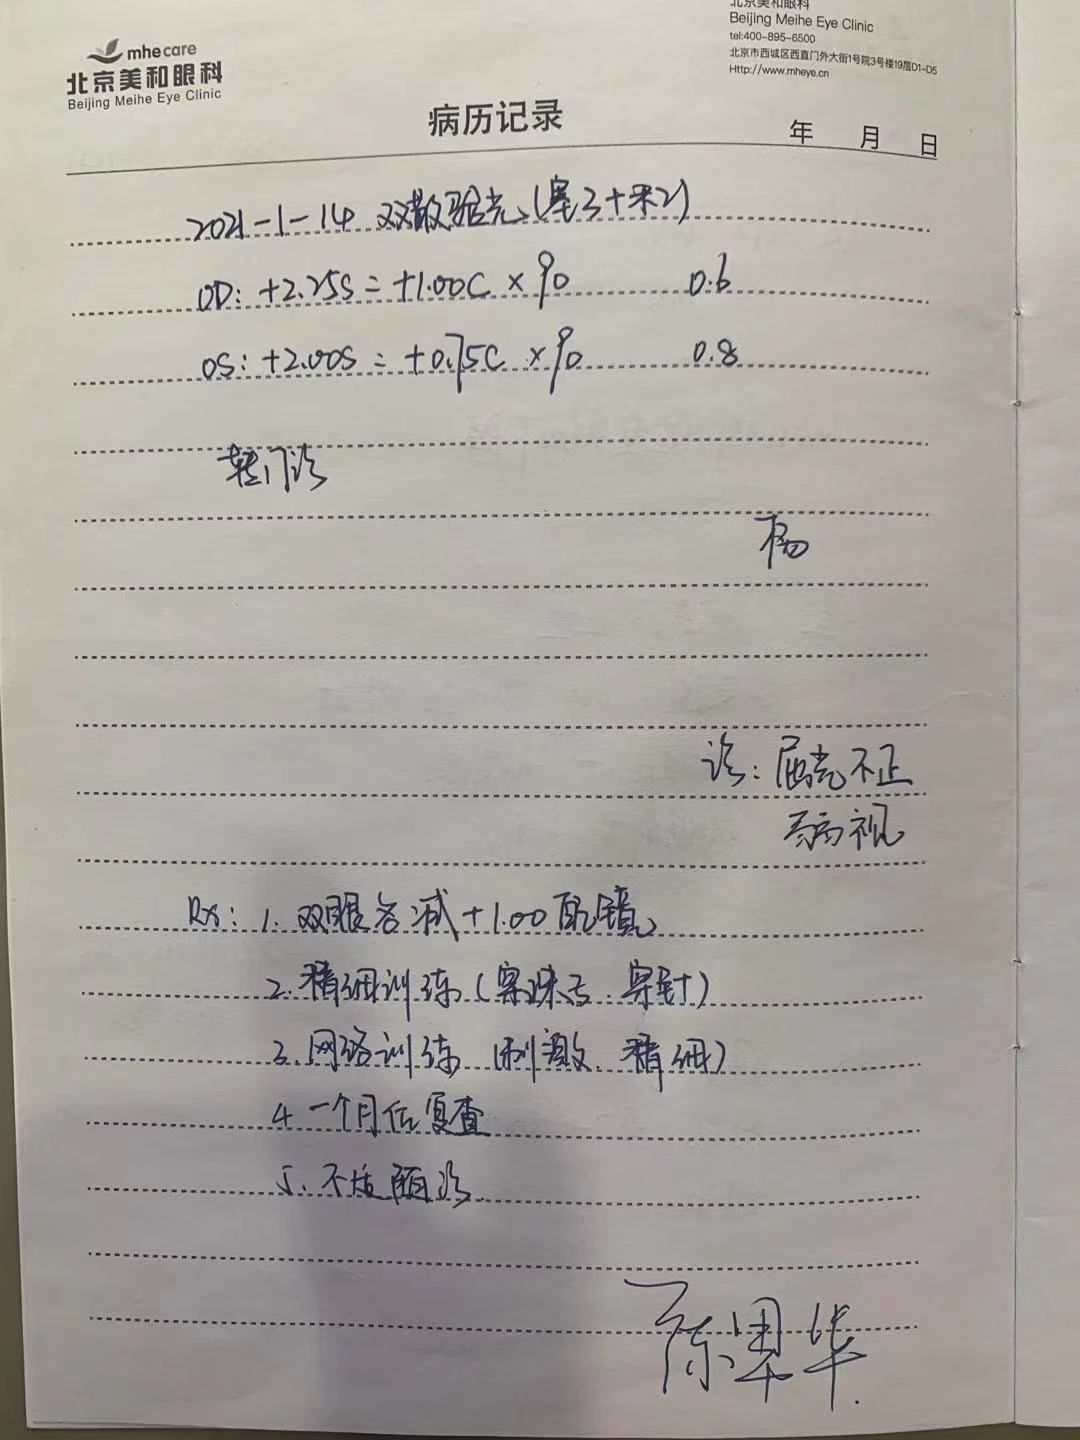 mhecare
北京美和眼科
Beijing Meihe Eye Clinic
北京美和眼科
Beijing Meihe Eye Clinic
tel:400-895-6500
北京市西城区西直门外大街1号院3号楼19层D1-D5
Http://www.mheye.cn
病历记录
年 月 日
2021-1-14 双散验光(塞3+米2)
OD: +2.25S = +1.00C × 90 0.6
OS: +2.00S = +0.75C × 90 0.8
转门诊
杨
诊: 屈光不正
弱视
Rx: 1. 双眼各减+1.00配镜
2. 精细训练(穿珠子、穿针)
3. 网络训练(刺激、精细)
4. 一个月后复查
5. 不适随诊